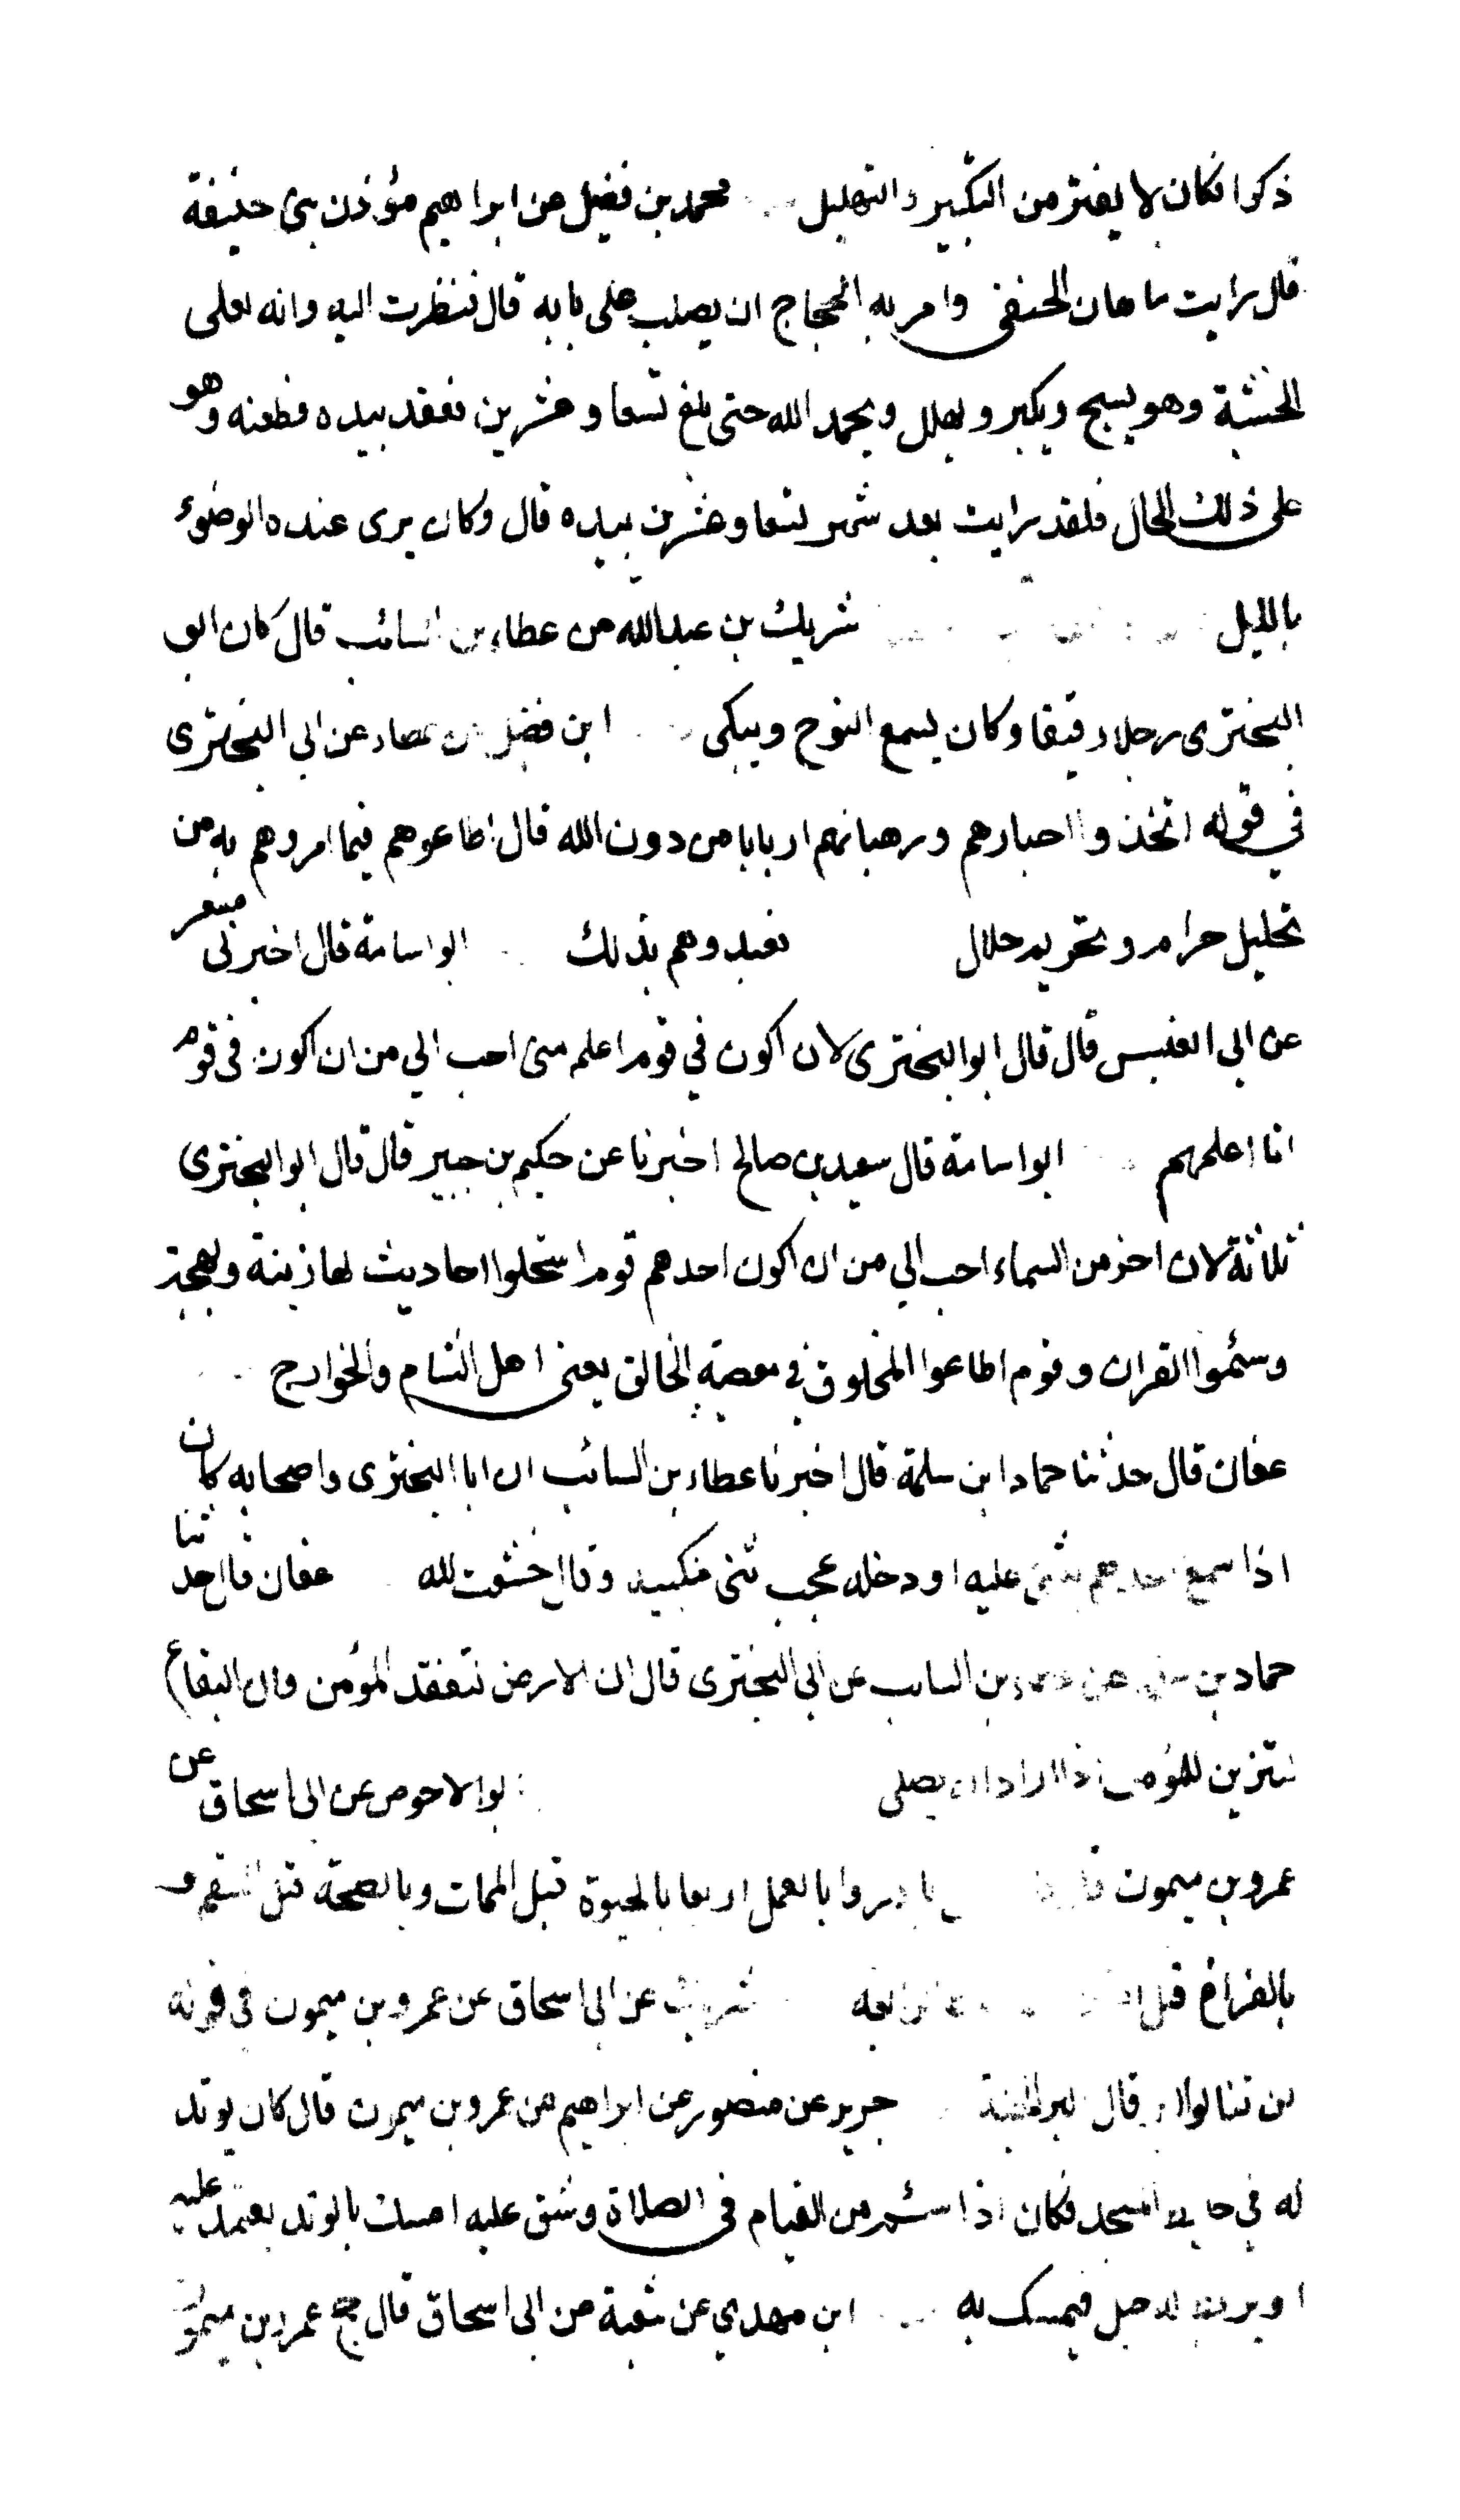 ذكرا فكان لا يفتر من التكبير والتهليل محمد بن فضيل عن ابراهيم مؤذن بني حنيفة
قال رايت ماهان الحنفي وامر به الحجاج ان يصلب على بابه قال فنظرت اليه وانه لعلى
الخشبة وهو يسبح ويكبر ويهلل ويحمد الله حتى بلغ تسعا وعشرين فعقد بيده فطعنه وهو
على ذلك الحال فلقد رايت بعد شهر تسعا وعشرين بيده قال وكان يرى عنده الوضوء
بالليل شريك بن عبد الله عن عطاء بن السائب قال كان ابو
البختري رجلا رقيقا وكان يسمع النوح ويبكي ابن فضيل عن عطاء عن ابي البختري
في قوله اتخذوا احبارهم ورهبانهم اربابا من دون الله قال اطاعوهم فيما امروهم به من
تحليل حرام وتحريم حلال فعبدوهم بذلك ابو اسامة قال اخبرني مسعر
عن ابي العنبس قال قال ابو البختري لان اكون في قوم اعلم مني احب الي من ان اكون في قوم
انا اعلمهم ابو اسامة قال سعيد بن صالح اخبرنا عن حكيم بن جبير قال قال ابو البختري
ثلاثة لان اخر من السماء احب الي من ان اكون احدهم قوم استحلوا احاديث لها زينة وبهجة
وسئموا القران وقوم اطاعوا المخلوق في معصية الخالق يعني اهل الشام والخوارج
عفان قال حدثنا حماد ابن سلمة قال اخبرنا عطاء بن السائب ان ابا البختري واصحابه كان
اذا سمع احدهم يثنى عليه او دخله عجب ثنى منكبيه وقال خشعت لله عفان قال حدثنا
حماد بن عن بن السايب عن ابي البختري قال ان الارض لتفقد المؤمن وان البقاع
لتزين للمؤمن اذا اراد ان يصلي ابو الاحوص عن ابي اسحاق عن
عمرو بن ميمون قال بادروا بالعمل اربعا بالحيوة قبل الممات وبالصحة قبل السقم و
بالفراغ قبل شريك عن ابي اسحاق عن عمرو بن ميمون في قوله
لن تنالوا البر قال البر الجنة جرير عن منصور عن ابراهيم عن عمرو بن ميمون قال كان يوتد
له في حايط المسجد فكان اذا سئم من القيام في الصلاة وشق عليه امسك بالوتد يعتمد عليه
او يربط له حبل فيمسك به ابن مهدي عن شعبة عن ابي اسحاق قال حج عمرو بن ميمون